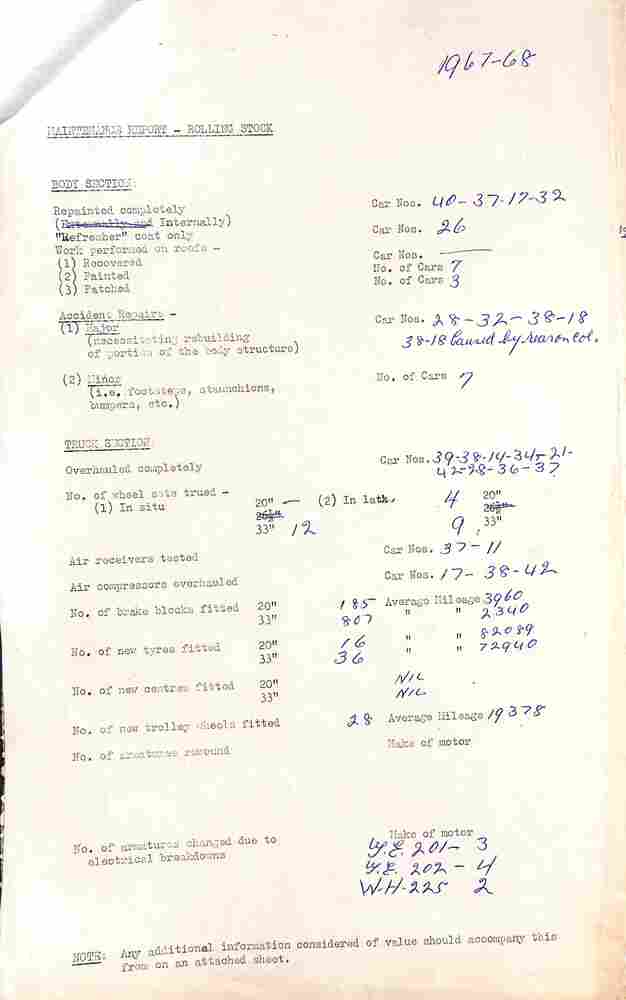 1967-68
MAINTENANCE REPORT - ROLLING STOCK
BODY SECTION:
Repainted completely Car Nos. 40-37-17-32
(Externally and Internally)
"Refresher" coat only Car Nos. 26
Work performed on roofs -
(1) Recovered Car Nos. —
(2) Painted No. of Cars 7
(3) Patched No. of Cars 3
Accident Repairs - Car Nos. 28-32-38-18
(1) Major
(necessitating rebuilding 38-18 Caused by rear on col.
of portion of the body structure)
(2) Minor No. of Cars 7
(i.e. footsteps, staunchions,
bumpers, etc.)
TRUCK SECTION:
Overhauled completely Car Nos. 39-38-14-34-21-
42-28-36-37
No. of wheel sets trued -
(1) In situ 20" — (2) In lathe 4 20"
26½" 26½"
33" 12 9 33"
Air receivers tested Car Nos. 37-11
Air compressors overhauled Car Nos. 17-38-42
No. of brake blocks fitted 20" 185 Average Mileage 3960
33" 807 " " 2340
No. of new tyres fitted 20" 16 " " 82089
33" 36 " " 72940
No. of new centres fitted 20" NIL
33" NIL
No. of new trolley wheels fitted 28 Average Mileage 19378
No. of armatures rewound Make of motor
No. of armatures changed due to Make of motor
electrical breakdowns G.E. 201- 3
G.E. 202 - 4
W-H-225 2
NOTE: Any additional information considered of value should accompany this
from on an attached sheet.